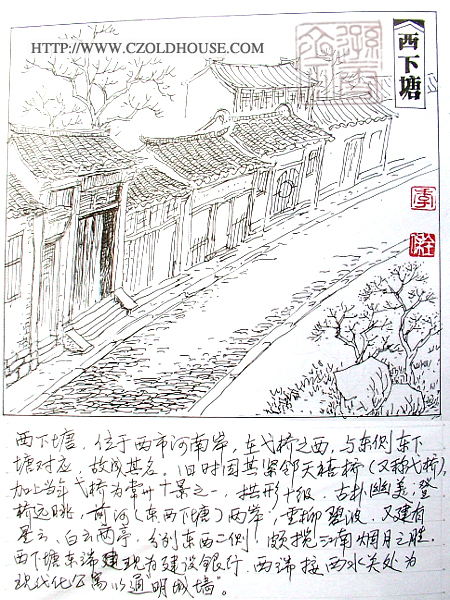 HTTP://WWW.CZOLDHOUSE.COM
西下塘
季
全
西下塘，位于西市河南岸，在弋桥之西，与东侧东下
塘对应，故成其名。旧时因其紧邻天禧桥（又称弋桥），
加上当年弋桥为常州十景之一，拱形十级，古朴幽美，登
桥远眺，前河（东西下塘）两岸，垂柳碧波，又建有
星云、白云两亭，分列东西二侧，颇揽江南烟月之胜。
西下塘东端现为建设银行，西端接西水关处为
现代化公寓以通"明城墙"。